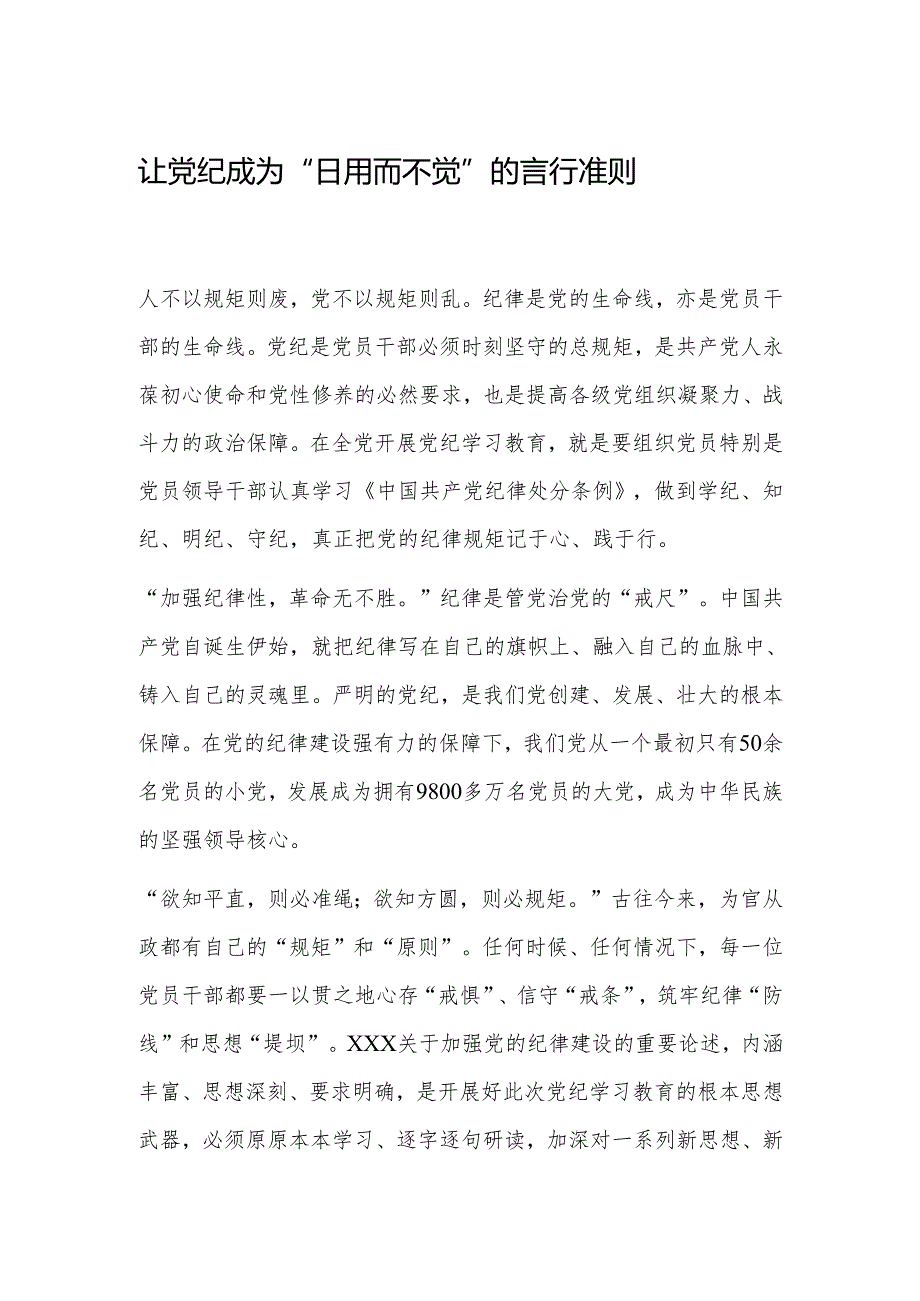 让党纪成为“日用而不觉”的言行准则
人不以规矩则废，党不以规矩则乱。纪律是党的生命线，亦是党员干
部的生命线。党纪是党员干部必须时刻坚守的总规矩，是共产党人永
葆初心使命和党性修养的必然要求，也是提高各级党组织凝聚力、战
斗力的政治保障。在全党开展党纪学习教育，就是要组织党员特别是
党员领导干部认真学习《中国共产党纪律处分条例》，做到学纪、知
纪、明纪、守纪，真正把党的纪律规矩记于心、践于行。
“加强纪律性，革命无不胜。”纪律是管党治党的“戒尺”。中国共
产党自诞生伊始，就把纪律写在自己的旗帜上、融入自己的血脉中、
铸入自己的灵魂里。严明的党纪，是我们党创建、发展、壮大的根本
保障。在党的纪律建设强有力的保障下，我们党从一个最初只有50余
名党员的小党，发展成为拥有9800多万名党员的大党，成为中华民族
的坚强领导核心。
“欲知平直，则必准绳；欲知方圆，则必规矩。”古往今来，为官从
政都有自己的“规矩”和“原则”。任何时候、任何情况下，每一位
党员干部都要一以贯之地心存“戒惧”、信守“戒条”，筑牢纪律“防
线”和思想“堤坝”。XXX关于加强党的纪律建设的重要论述，内涵
丰富、思想深刻、要求明确，是开展好此次党纪学习教育的根本思想
武器，必须原原本本学习、逐字逐句研读，加深对一系列新思想、新